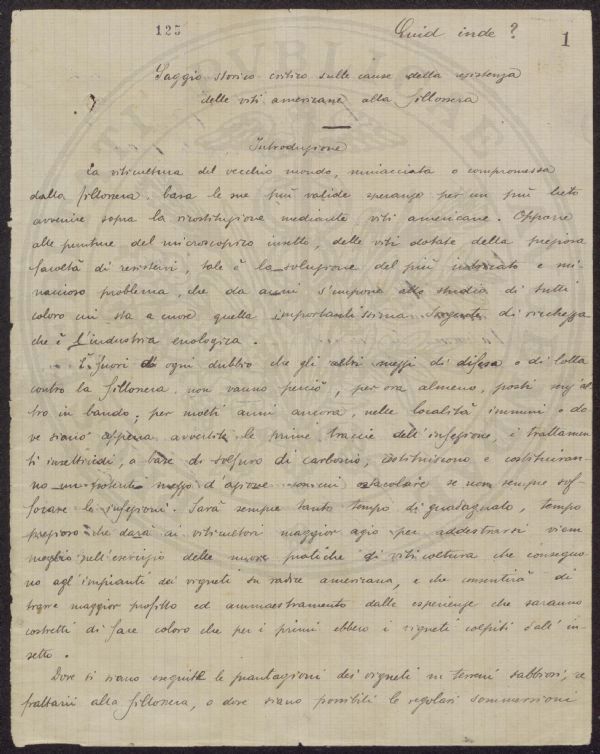 125
Quid inde?
1
Saggio storico critico sulle cause della resistenza
delle viti americane alla fillossera
Introduzione
La viticultura del vecchio mondo, minacciata o compromessa
dalla fillossera, basa le sue più valide speranze per un più lieto
avvenire sopra la ricostituzione mediante viti americane. Opporre
alle punture del microscopico insetto, delle viti dotate della preziosa
facoltà di resistervi, tale è la soluzione del più intricato e mi-
naccioso problema, che da anni s'impone allo studio di tutti
coloro cui sta a cuore quella importantissima sorgente di ricchezza
che è l'industria enologica.
È fuori di ogni dubbio che gli altri mezzi di difesa o di lotta
contro la fillossera, non vanno perciò, per ora almeno, posti senz'al
tro in bando; per molti anni ancora, nelle località immuni o do
ve siano appena avvertite le prime traccie dell'infezione, i trattamen
ti insetticidi, a base di solfuro di carbonio, costituiscono e costituiran-
no un mezzo d'azione se non sempre sof-
focare le infezioni. Sarà sempre tanto tempo di guadagnato, tempo
prezioso che darà ai viticultori maggior agio per addestrarsi viem
meglio nell'esercizio delle nuove pratiche di viticoltura che conseguo
no agl'impianti dei vigneti su radice americana, e che consentirà di
trarre maggior profitto ed ammaestramento dalle esperienze che saranno
costretti di fare coloro che per i primi ebbero i vigneti colpiti dall'in-
setto.
Dove si siano eseguite le piantagioni dei vigneti in terreni sabbiosi, re
frattarii alla fillossera, o dove siano possibili le regolari sommersioni